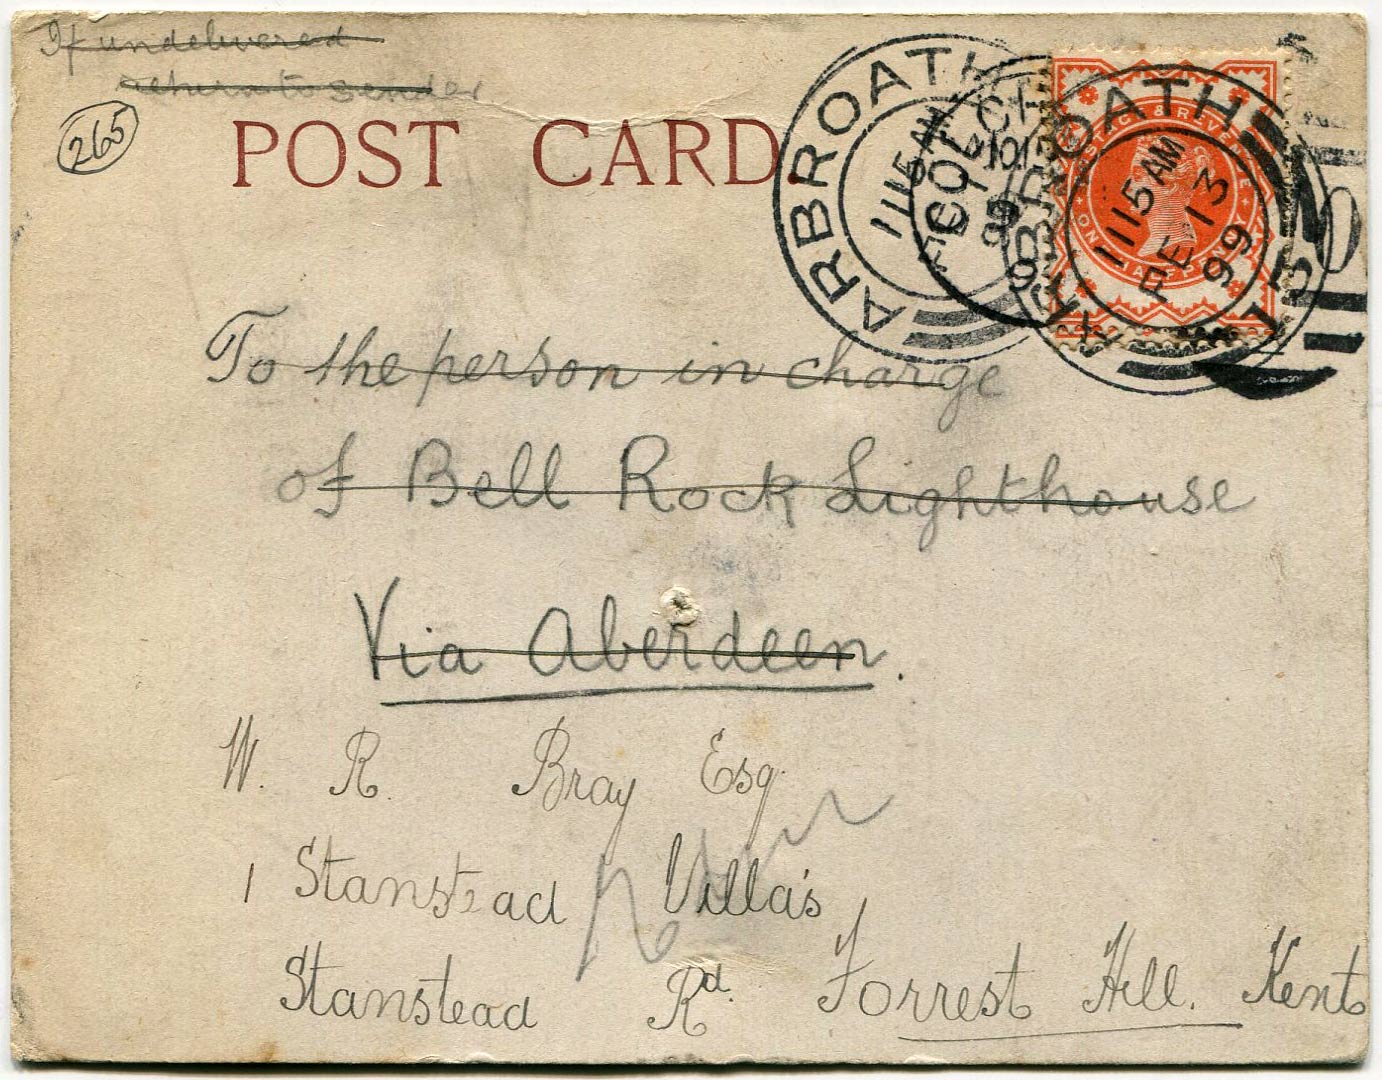 If undelivered
return to sender
265
POST CARD.
ARBROATH
11 15 AM
FE 13
99
ARBROATH
11 15 AM
FE 13
99
POSTAGE & REVENUE
ONE HALFPENNY
To the person in charge
of Bell Rock Lighthouse
Via Aberdeen.
W. R. Bray Esq
1 Stanstead Villa's
Stanstead Rd. Forrest Hill. Kent